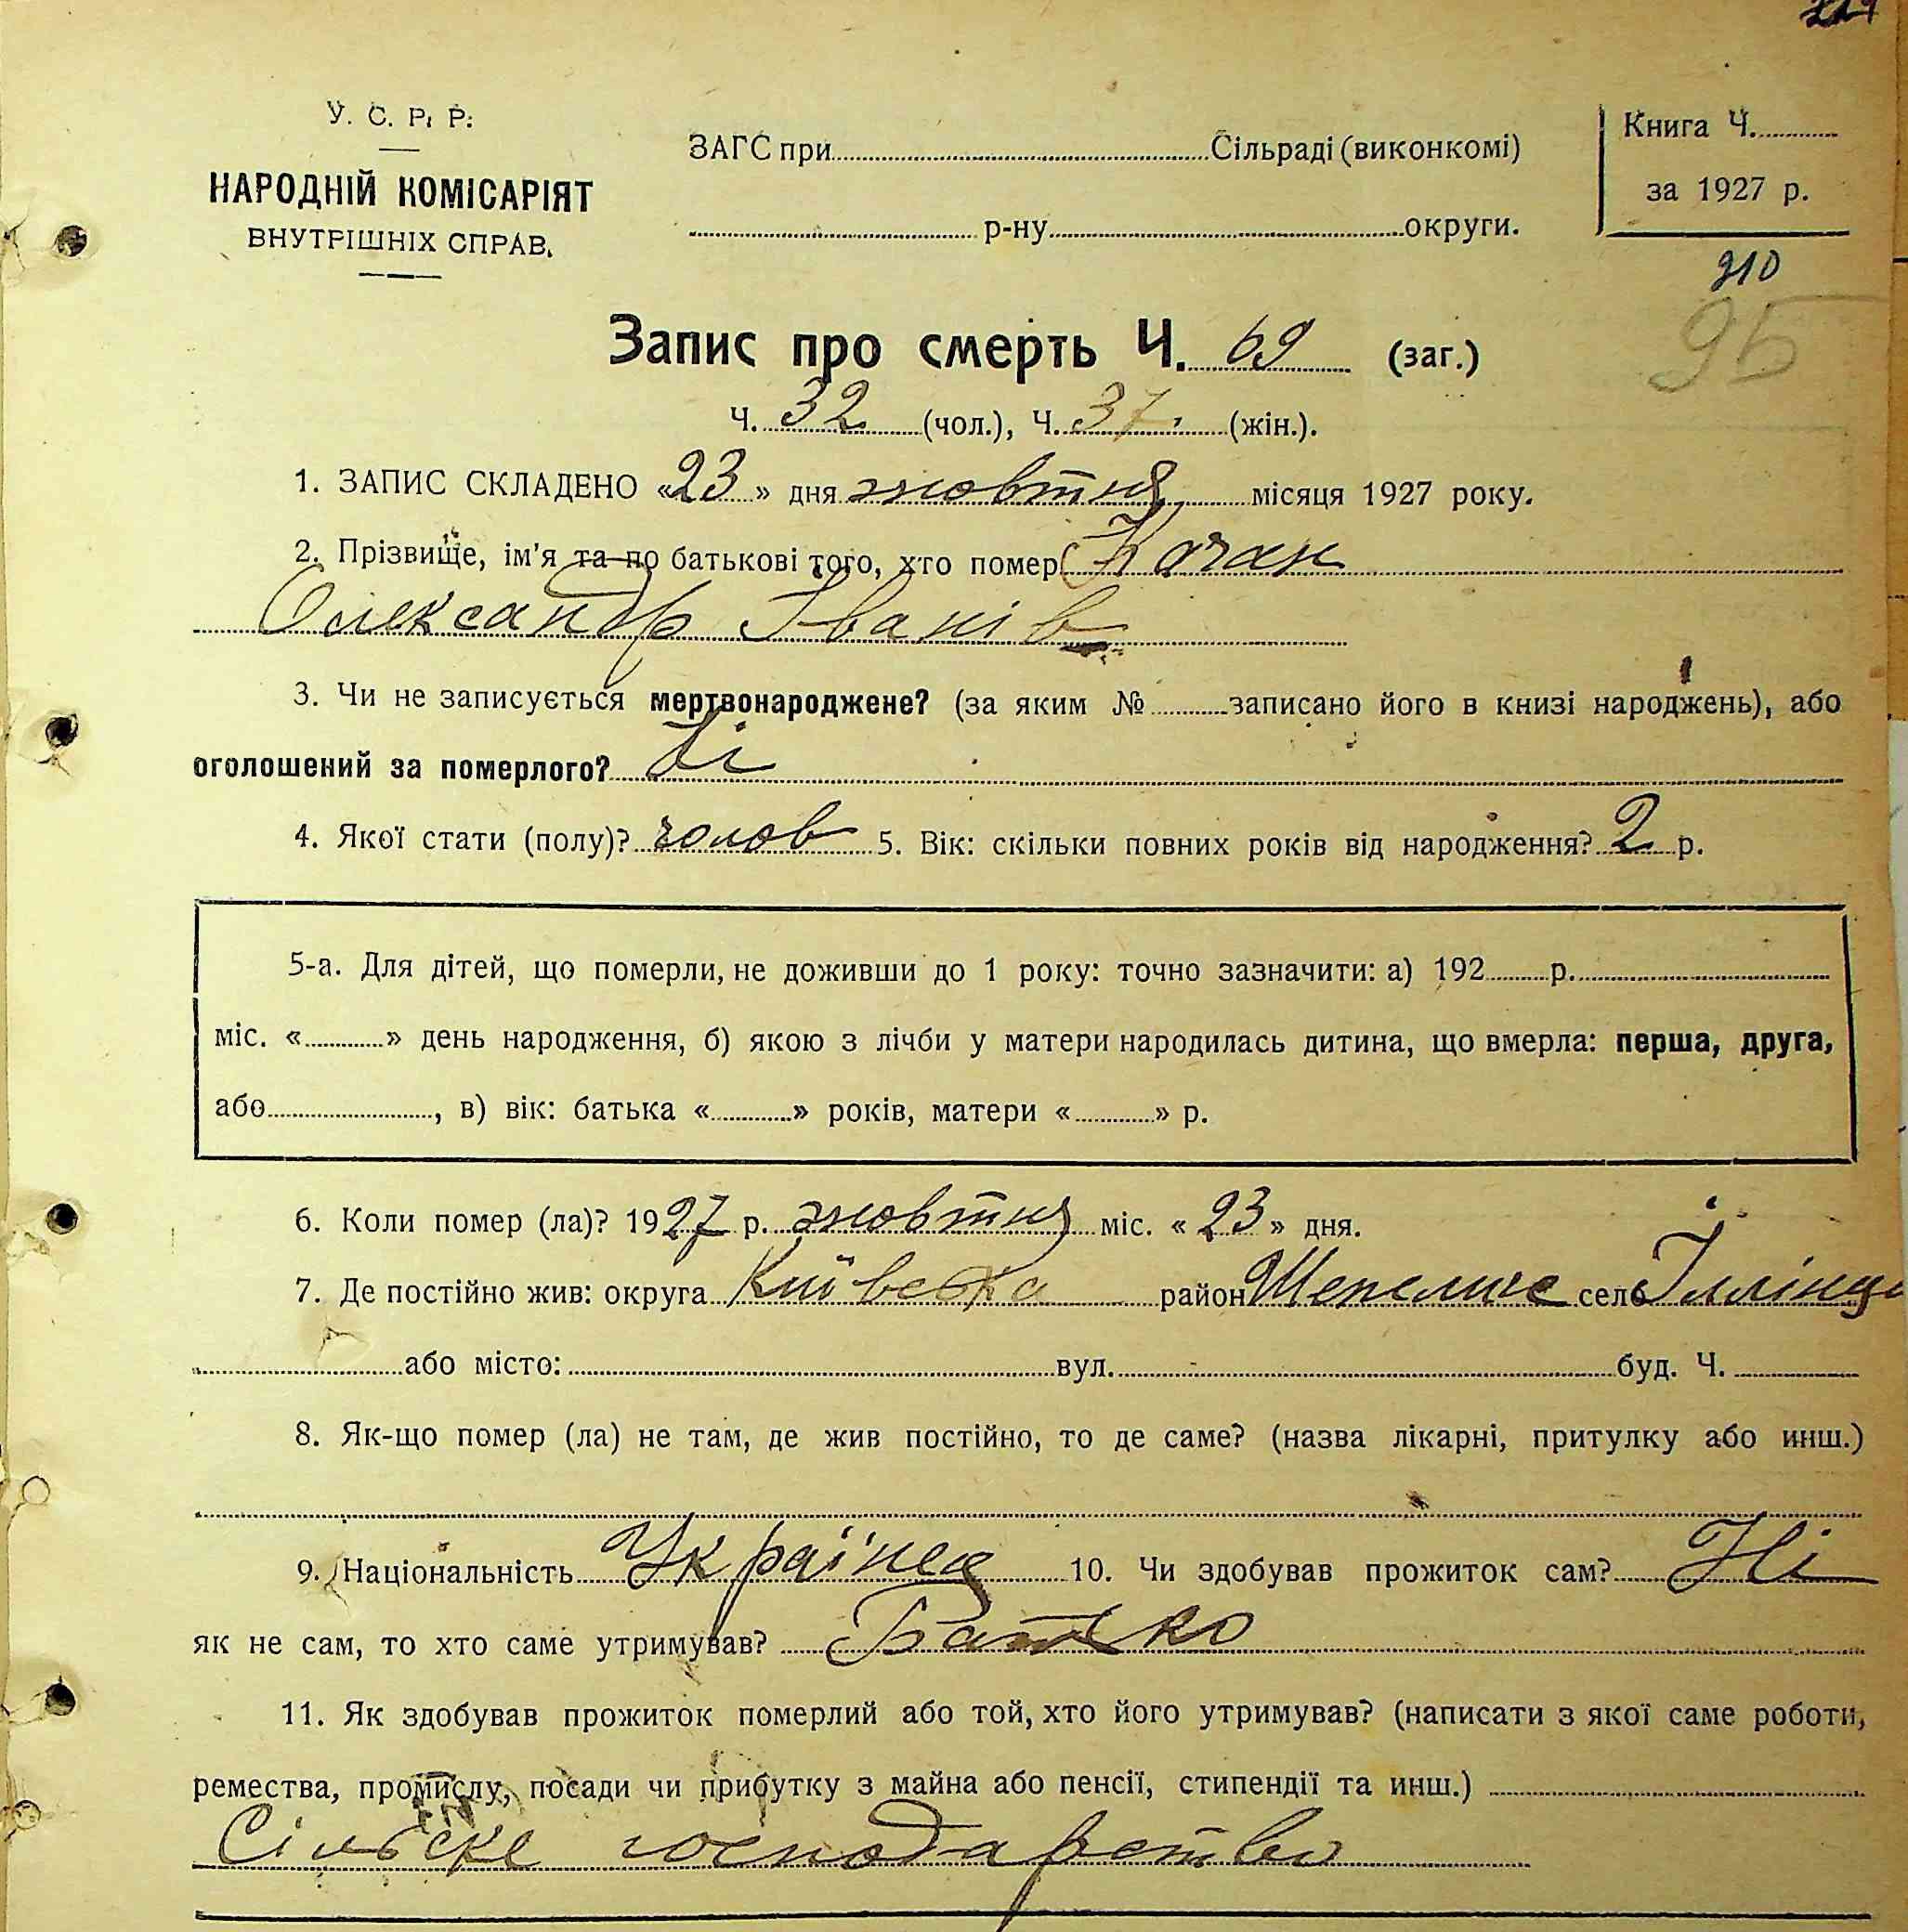 У. С. Р. Р.
НАРОДНІЙ КОМІСАРІЯТ
ВНУТРІШНІХ СПРАВ.
ЗАГС при Сільраді (виконкомі)
р-ну округи.
Книга Ч.
за 1927 р.
210
95
Запис про смерть Ч. 69 (заг.)
Ч. 32 (чол.), Ч. 37 (жін.).
1. ЗАПИС СКЛАДЕНО «23» дня жовтня місяця 1927 року.
2. Прізвище, ім'я та по батькові того, хто помер Качан
Олександр Іванів
3. Чи не записується мертвонароджене? (за яким № записано його в книзі народжень), або
оголошений за померлого? Ні
4. Якої стати (полу)? чолов 5. Вік: скільки повних років від народження? 2 р.
5-а. Для дітей, що померли, не доживши до 1 року: точно зазначити: а) 192 р.
міс. « » день народження, б) якою з лічби у матери народилась дитина, що вмерла: перша, друга,
або , в) вік: батька « » років, матери « » р.
6. Коли помер (ла)? 1927 р. жовтня міс. «23» дня.
7. Де постійно жив: округа Київська район Шепеличе село Іллінці
або місто: вул. буд. Ч.
8. Як-що помер (ла) не там, де жив постійно, то де саме? (назва лікарні, притулку або инш.)
9. Національність Українец 10. Чи здобував прожиток сам? Ні
як не сам, то хто саме утримував? Батько
11. Як здобував прожиток померлий або той, хто його утримував? (написати з якої саме роботи,
ремества, промислу, посади чи прибутку з майна або пенсії, стипендії та инш.)
Сільске господарство